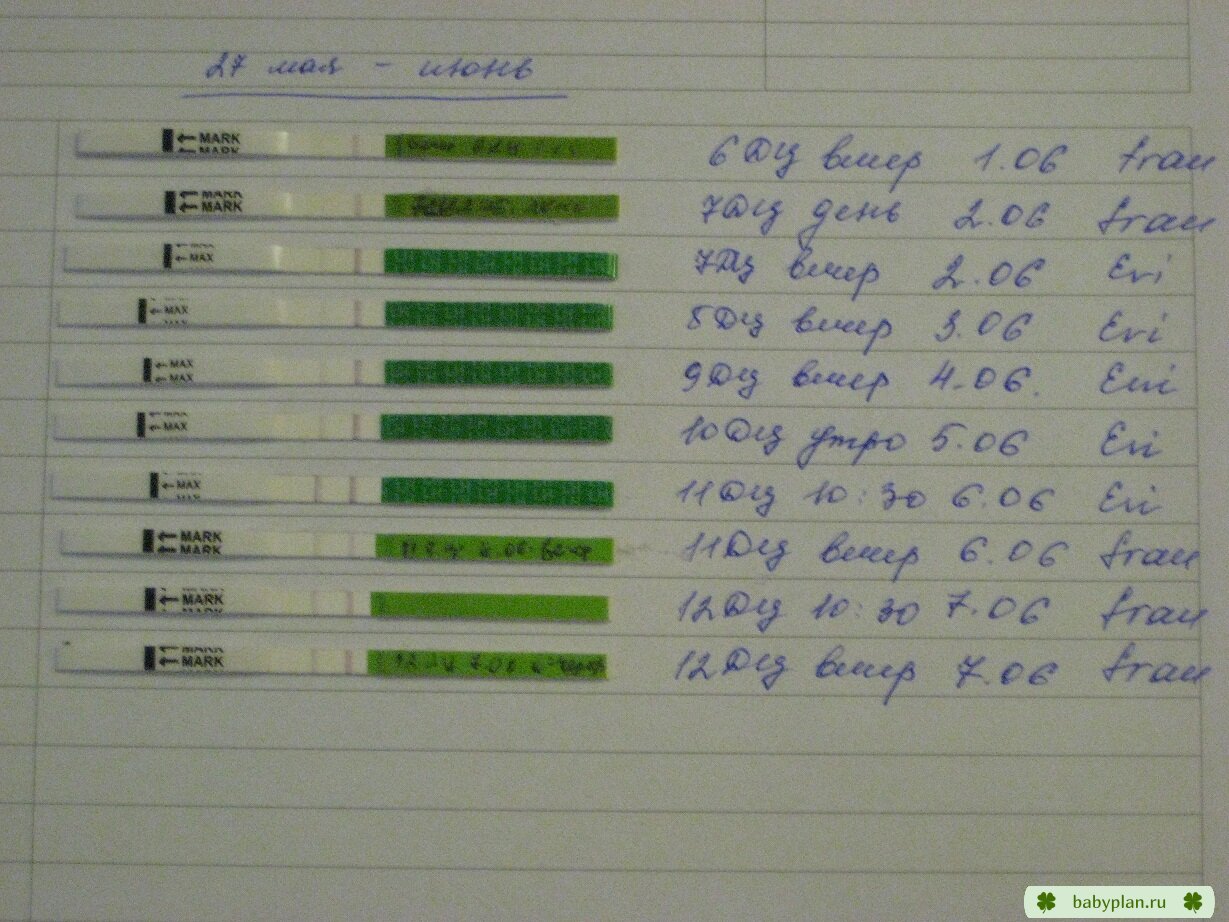 27 мая - июнь
← MARK
← MARK
6 ДЦ вечер 1.06 frau
← MARK
← MARK
7 ДЦ день 2.06 frau
← MAX
7 ДЦ вечер 2.06 Evi
← MAX
8 ДЦ вечер 3.06 Evi
← MAX
← MAX
9 ДЦ вечер 4.06. Evi
← MAX
10 ДЦ утро 5.06 Evi
← MAX
11 ДЦ 10:30 6.06 Evi
← MARK
← MARK
11 ДЦ вечер 6.06 frau
← MARK
12 ДЦ 10:30 7.06 frau
← MARK
← MARK
12 ДЦ вечер 7.06 frau
babyplan.ru